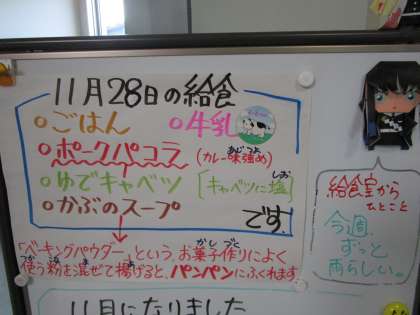 11月28日の給食
○ごはん ○牛乳
○ポークパコラ (カレー味強め)
○ゆでキャベツ [キャベツに塩]
○かぶのスープ です。
「ベーキングパウダー」という、お菓子作りによく
使う粉を混ぜて揚げると、パンパンにふくれます。
給食室から
ひとこと
今週、
ずっと
雨らしい。
11月になりました